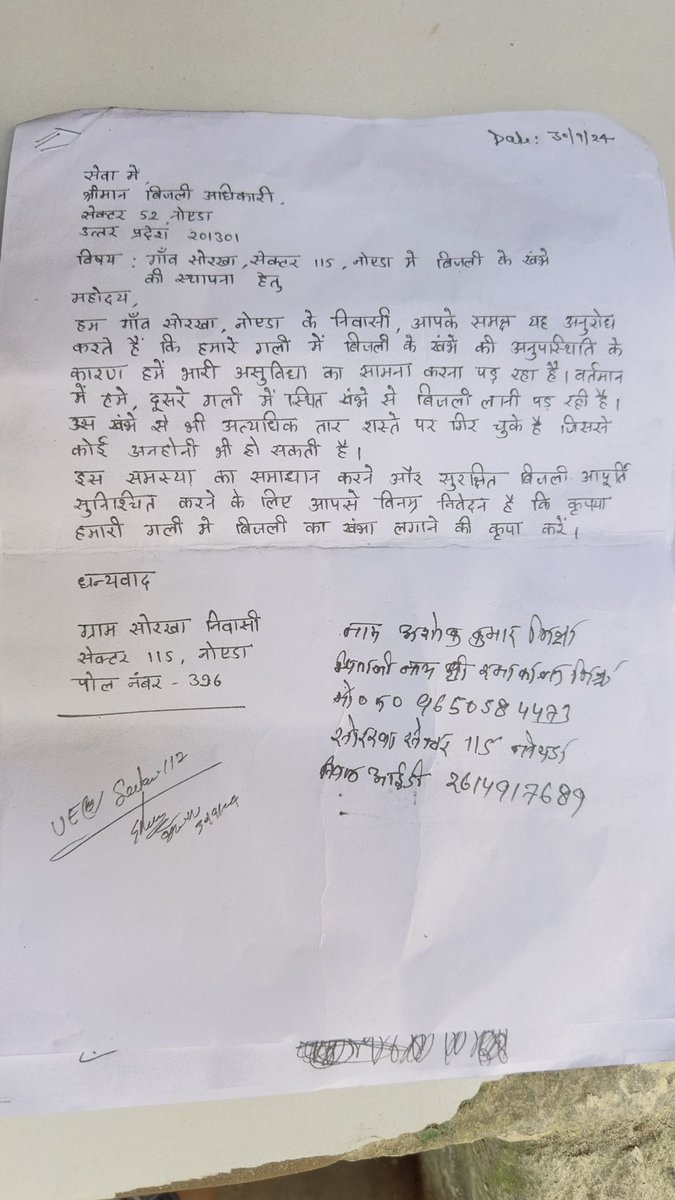 Date: 30/9/24
सेवा मे,
श्रीमान बिजली अधिकारी,
सेक्टर 52, नोएडा
उत्तर प्रदेश 201301
विषय : गाँव सोरखा, सेक्टर 115, नोएडा मे बिजली के खंभे
की स्थापना हेतु
महोदय,
हम गाँव सोरखा, नोएडा के निवासी, आपके समक्ष यह अनुरोध
करते हैं कि हमारे गली में बिजली के खंभे की अनुपस्थिति के
कारण हमें भारी असुविधा का सामना करना पड़ रहा है। वर्तमान
में हमे, दूसरे गली में स्थित खंभे से बिजली लानी पड़ रही है।
उस खंभे से भी अत्यधिक तार रास्ते पर गिर चुके है जिससे
कोई अनहोनी भी हो सकती है।
इस समस्या का समाधान करने और सुरक्षित बिजली आपूर्ति
सुनिश्चित करने के लिए आपसे विनम्र निवेदन है कि कृपया
हमारी गली मे बिजली का खंभा लगाने की कृपा करें।
धन्यवाद
ग्राम सोरखा निवासी
सेक्टर 115, नोएडा
पोल नंबर - 396
नाम अशोक कुमार मिश्रा
पिताजी नाम श्री रमाकान्त मिश्रा
मो० न० 9650584473
सोरखा सेक्टर 115 नोएडा
आईडी 2614917689
Sector 112